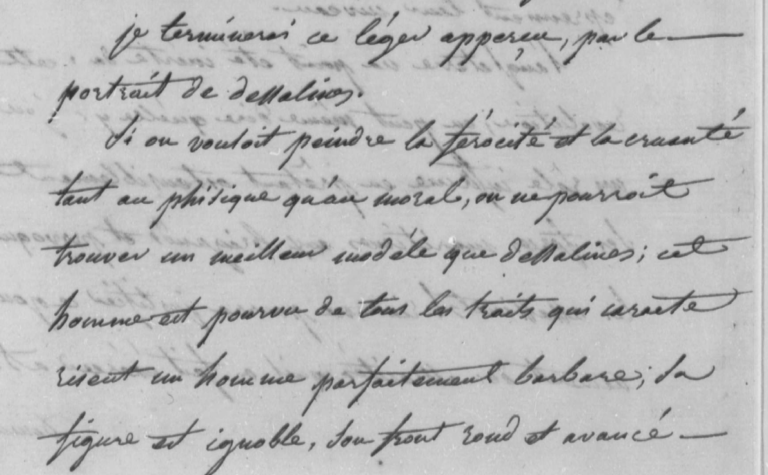 je terminerai ce léger apperçu, par le
portrait de dessalines.
Si on vouloit peindre la férocité et la cruauté
tant au phisique qu'au moral, on ne pourroit
trouver un meilleur modéle que dessalines; cet
homme est pourvu de tous les traits qui caracte
risent un homme parfaitement barbare; sa
figure est ignoble, son front rond et avancé